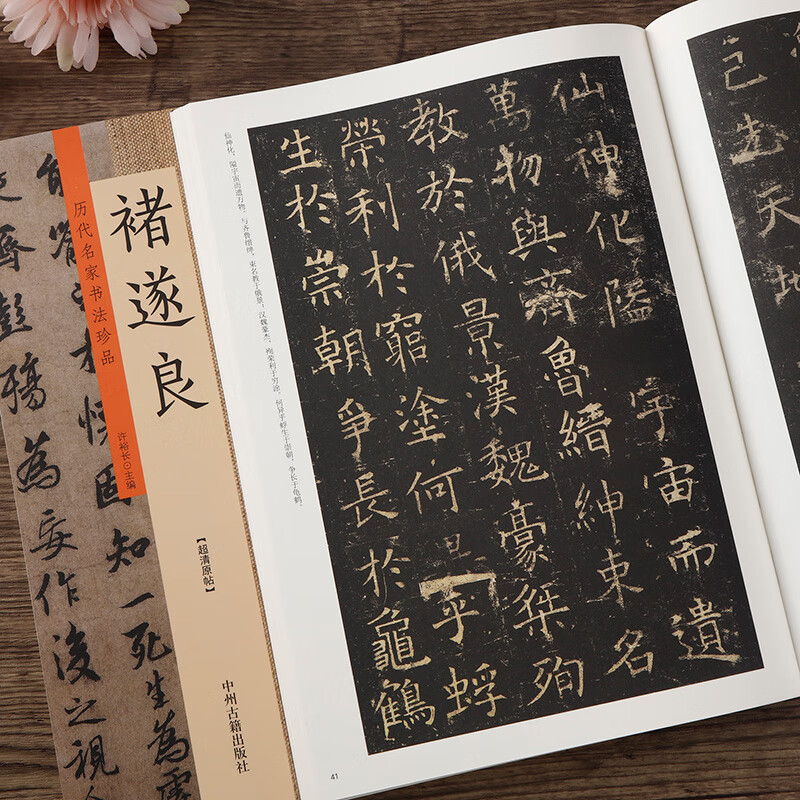 历代名家书法珍品
褚遂良
许裕长⊙主编
【超清原帖】
中州古籍出版社
固知一死生為虛
齊彭殤為妄作後之視
己先天地
仙神化隘宇宙而遺
萬物與齊魯縉紳束名
教於俄景漢魏豪桀殉
榮利於窮塗何異乎蜉
生於崇朝爭長於龜鶴
仙神化，隘宇宙而遗万物。与齐鲁缙绅，束名教于俄景；汉魏豪杰，殉荣利于穷途。何异乎蜉生于崇朝，争长于龟鹤。
41